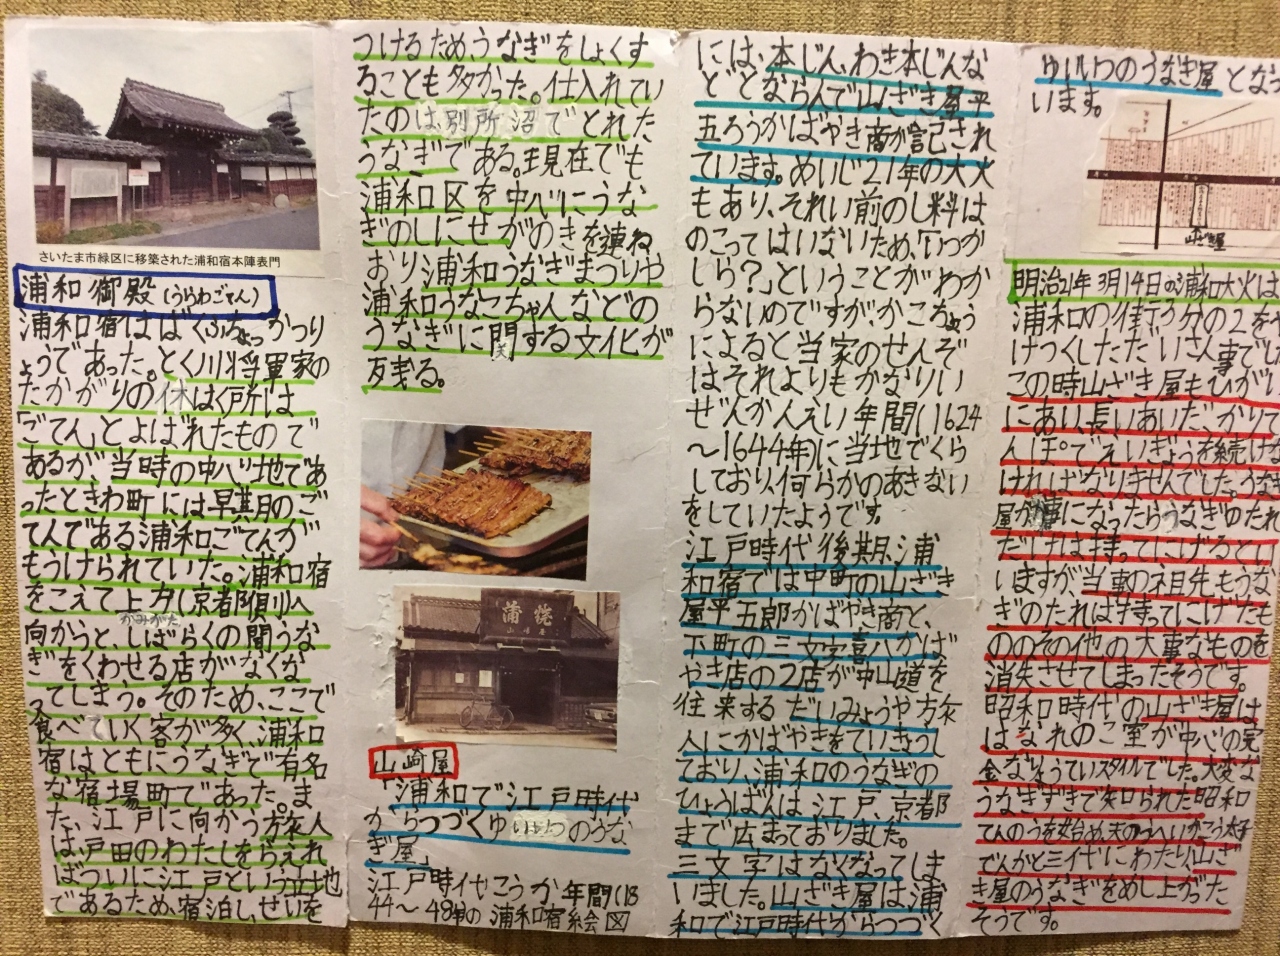 さいたま市緑区に移築された浦和宿本陣表門
浦和御殿(うらわごてん)
浦和宿はばくふちょっかつり
ょうであった。とく川将軍家の
たかがりの休はく所は
「ごてん」とよばれたもので
あるが当時の中心地であ
ったときわ町には早期のご
てんである浦和ごてんが
もうけられていた。浦和宿
をこえて上方(京都側)へ
かみがた
向かうと、しばらくの間うな
ぎをくわせる店がなくな
ってしまう。そのため、ここで
食べていく客が多く、浦和
宿はともにうなぎで有名
な宿場町であった。ま
た、江戸に向かう旅人
は、戸田のわたしをらえれ
ばついに江戸という立地
であるため、宿泊し、せいを
つけるためうなぎをしょくす
ることも多かった。仕入れてい
たのは、別所沼でとれた
うなぎである。現在でも
浦和区を中心にうな
ぎのしにせがのきを連ね
おり浦和うなぎまつりや
浦和うなこちゃんなどの
うなぎに関する文化が
残る。
蒲焼
山崎屋
「浦和で江戸時代
からつづくゆいいつのうな
ぎ屋」
江戸時代こうか年間(18
44〜48年)の浦和宿絵図
には、本じん、わき本じんな
どとならんで山ざき屋平
五ろうかばやき商が記され
ています。めいじ21年の大火
もあり、それい前のし料は
のこってはいないため、「いつか
しら?」ということがわか
らないのですが、かこちょう
によると当家のせんぞ
はそれよりもかなりい
ぜんかんえい年間(1624
〜1644年)に当地でくら
しており、何らかのあきない
をしていたようです。
江戸時代後期、浦
和宿では中町の山ざき
屋平五郎かばやき商と、
下町の三文字喜八かば
やき店の2店が中山道を
往来するだいみょうや方旅
人にかばやきをていきょうし
ており、浦和のうなぎの
ひょうばんは、江戸、京都
まで広まっておりました。
三文字はなくなってしま
いました。山ざき屋は、浦
和で江戸時代からつづく
ゆいいつのうなぎ屋となって
います。
山ざき屋
明治21年3月14日の浦和大火は
浦和の街の3分の2をや
けつくしただいさん事でした
この時山ざき屋もひがい
にあい、長いあいだ、かりて
んぽでえいぎょうを続けな
ければなりませんでした。うなぎ
屋が火事になったらうなぎのたれ
だけは持ってにげるとい
いますが、当事の祖先もうな
ぎのたれは持ってにげたも
ののその他の大事なものを
消失させてしまったそうです。
昭和時代の山ざき屋は
はなれのこ室が中心の完
全なりょうていスタイルでした。大変な
うなぎずきで知られた昭和
てんのうを始め、天のうへいか、こう太子
でんかと三代にわたり、山ざ
き屋のうなぎをめし上がった
そうです。